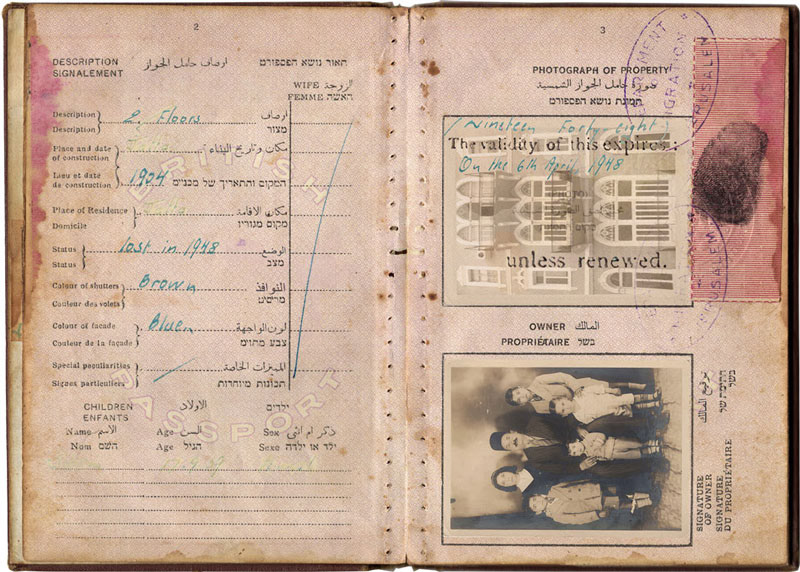 2
DESCRIPTION
SIGNALEMENT
اوصاف حامل الجواز
תאור נושא הפספורט
WIFE الزوجة
FEMME האשה
Description
Description
2 Floors
اوصاف
מצור
Place and date
of construction
مكان وتاريخ البناء
Lieu et date
de construction
1904
המקום והתאריך של
Place of Residence
Domicile
مكان الاقامة
מקום מגוריו
Status
Status
lost in 1948
الوضع
מצב
Colour of shutters
Couleur des volets
Brown
النوافذ
Colour of façade
Couleur de la façade
Blue
لون الواجهة
צבע
Special peculiarities
Signes particuliers
المميزات الخاصة
תכונות מיוחדות
BRITISH
PASSPORT
CHILDREN
ENFANTS
الاولاد
ילדים
Name الاسم
Nom השם
Age السن
Age הגיל
Sex ذكر ام انثى
Sexe ילד או ילדה
3
PHOTOGRAPH OF PROPERTY
صورة حامل الجواز
תמונת נושא הפספורט
Nineteen Forty eight
The validity of this expires:
On the 6th April, 1948
unless renewed.
OWNER المالك
PROPRIÉTAIRE בשל
توقيع المالك
חתימה של
בשל
SIGNATURE
OF OWNER
SIGNATURE
DU PROPRIÉTAIRE
JERUSALEM
JERUSALEM